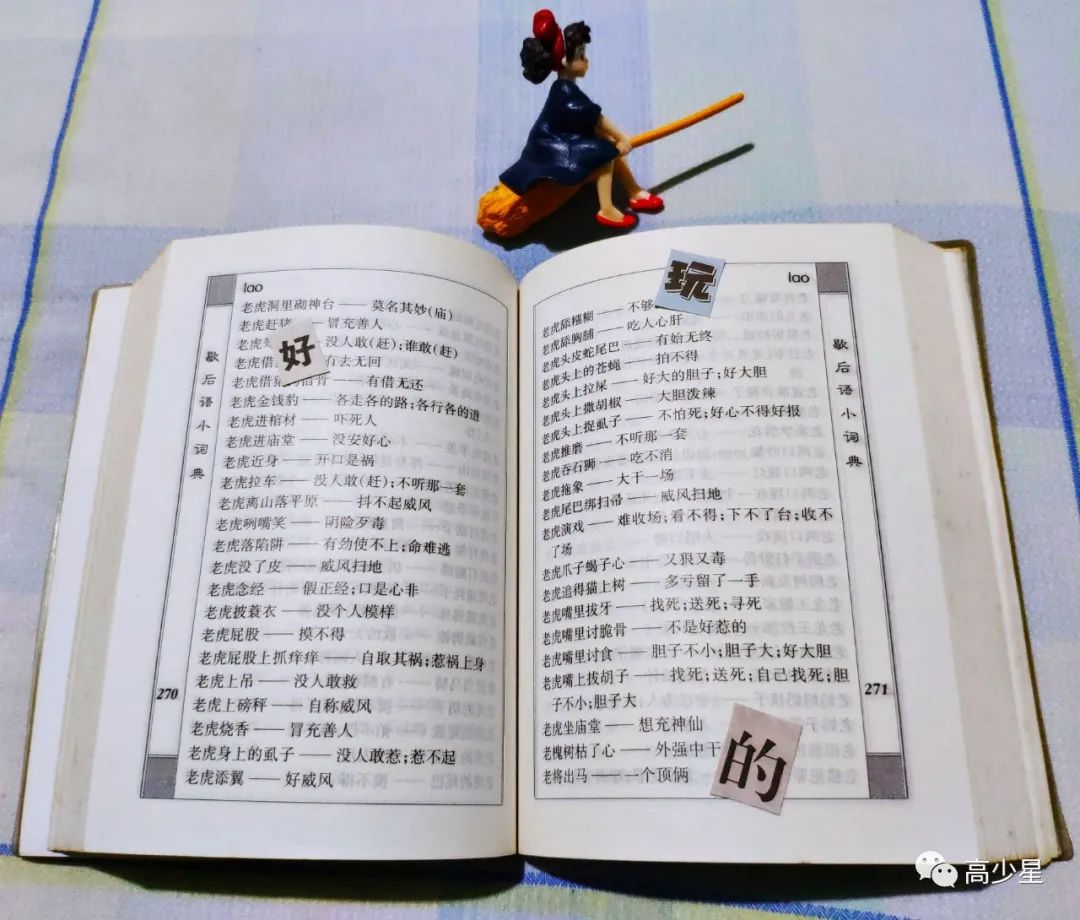 lao
老虎洞里砌神台——莫名其妙(庙)
老虎赶猪——冒充善人
老虎 没人敢(赶);谁敢(赶)
老虎借 有去无回
老虎借猪 ——有借无还
老虎金钱豹——各走各的路;各行各的道
老虎进棺材——吓死人
老虎进庙堂——没安好心
老虎近身——开口是祸
老虎拉车——没人敢(赶);不听那一套
老虎离山落平原——抖不起威风
老虎咧嘴笑——阴险歹毒
老虎落陷阱——有劲使不上;命难逃
老虎没了皮——威风扫地
老虎念经——假正经;口是心非
老虎披蓑衣——没个人模样
老虎屁股——摸不得
老虎屁股上抓痒痒——自取其祸;惹祸上身
老虎上吊——没人敢救
老虎上磅秤——自称威风
老虎烧香——冒充善人
老虎身上的虱子——没人敢惹;惹不起
老虎添翼——好威风
歇后语小词典
270
好
lao
老虎舔糨糊——不够
老虎舔胸脯——吃人心肝
老虎头皮蛇尾巴——有始无终
老虎头上的苍蝇——拍不得
老虎头上拉屎——好大的胆子;好大胆
老虎头上撒胡椒——大胆泼辣
老虎头上捉虱子——不怕死;好心不得好报
老虎推磨——不听那一套
老虎吞石狮——吃不消
老虎拖象——大干一场
老虎尾巴绑扫帚——威风扫地
老虎演戏——难收场;看不得;下不了台;收不
了场
老虎爪子蝎子心——又狠又毒
老虎追得猫上树——多亏留了一手
老虎嘴里拔牙——找死;送死;寻死
老虎嘴里讨脆骨——不是好惹的
老虎嘴里讨食——胆子不小;胆子大;好大胆
老虎嘴上拔胡子——找死;送死;自己找死;胆
子不小;胆子大
老虎坐庙堂——想充神仙
老槐树枯了心——外强中干
老将出马——一个顶俩
歇后语小词典
271
玩
的
高少星